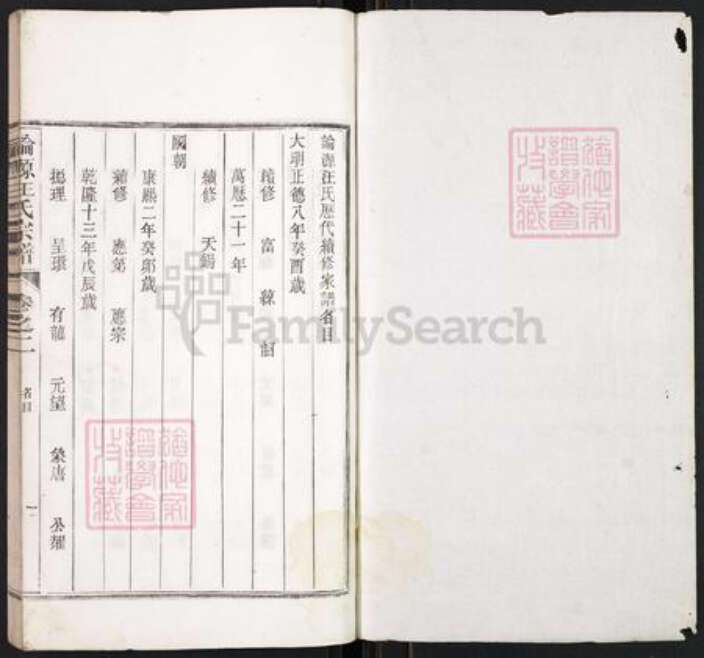 論源汪氏歷代續修家譜名目
大明正德八年癸酉歲
續修 富 韶
萬歷二十一年
續修 天錫
國朝
康熙二年癸卯歲
續修 應第 應宗
乾隆十三年戊辰歲
總理 呈璟 有龍 元望 榮唐 公耀
論源汪氏宗譜 卷之二 名目 一
FamilySearch